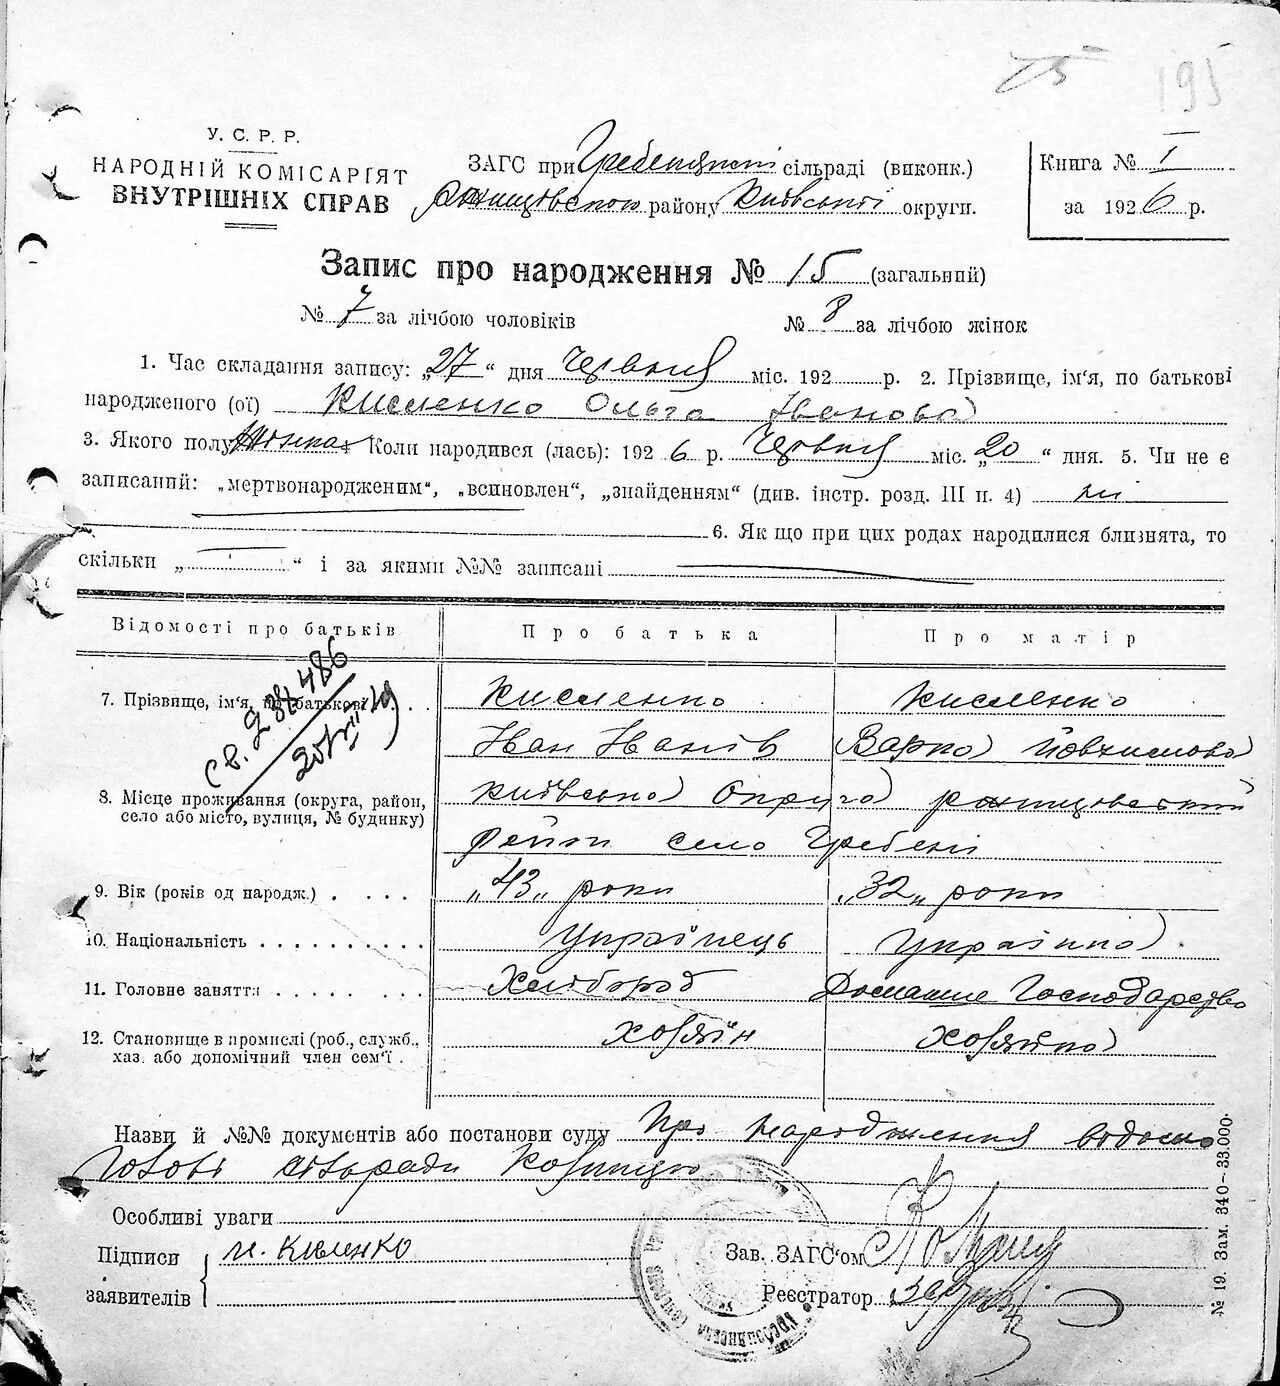 75 195
У. С. Р. Р.
НАРОДНІЙ КОМІСАРІЯТ
ВНУТРІШНІХ СПРАВ
ЗАГС при Гребенянські сільраді (виконк.)
району Київської округи.
Книга № I
за 1926 р.
Запис про народження № 15 (загальний)
№ 7 за лічбою чоловіків № 8 за лічбою жінок
1. Час складання запису: „27“ дня Червня міс. 192 р. 2. Прізвище, ім‘я, по батькові
народженого (ої) Кисленко Ольга Іванова
3. Якого полу Жіноча 4 Коли народився (лась): 1926 р. Червня міс. „20“ дня. 5. Чи не є
записаний: „мертвонародженим“, „всиновлен“, „знайденням“ (див. інстр. розд. III п. 4) ні
6. Як що при цих родах народилися близнята, то
скільки „ “ і за якими №№ записані
Відомості про батьків Про батька Про матір
7. Прізвище, ім‘я, по батькові Кисленко Кисленко
Іван Іванів Варка
св. 486
8. Місце проживання (округа, район,
село або місто, вулиця, № будинку)
Київська Округа
село Гребені
9. Вік (років од народж.) „43„ роки „32„ роки
10. Національність Українець Українка
11. Головне заняття Хлібороб Домашнє Господарство
12. Становище в промислі (роб., служб.,
хаз. або допомічний член сем‘ї . Хозяїн Хозяйка
Назви й №№ документів або постанови суду Про народження відомо
Голові сільради
Особливі уваги
Підписи
заявителів
Зав. ЗАГС‘ом
Реєстратор
№ 19. Зам. 340–33.000.